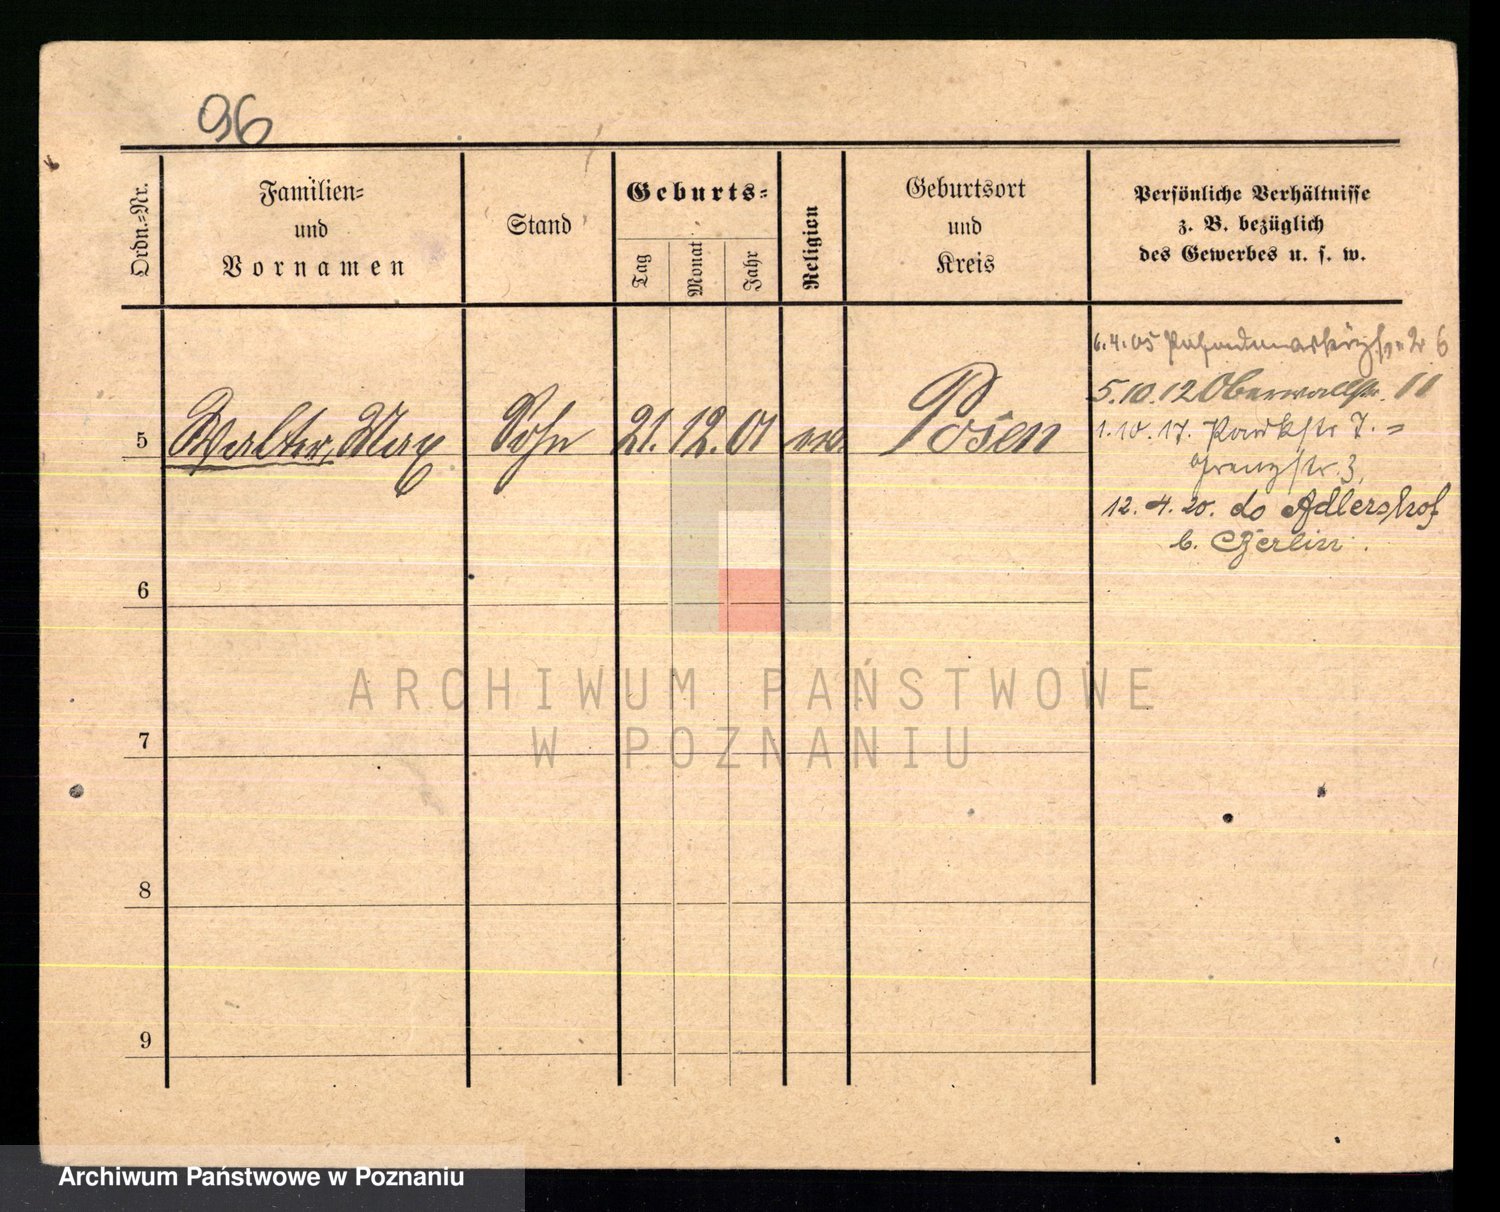 96
Ordn.=Nr.
Familien=
und
Vornamen
Stand
Geburts=
Tag
Monat
Jahr
Religion
Geburtsort
und
Kreis
Persönliche Verhältnisse
z. B. bezüglich
des Gewerbes u. s. w.
6.4.05 6
5.10.12 Oberwallstr. 11
5 Walter, Max Sohn 21. 12. 01 ev. Posen
1.10.17. Parkstr 7. =
Grenzstr. 3,
12. 4. 20. do Adlershof
b. Berlin.
6
7
8
9
ARCHIWUM PAŃSTWOWE
W POZNANIU
Archiwum Państwowe w Poznaniu